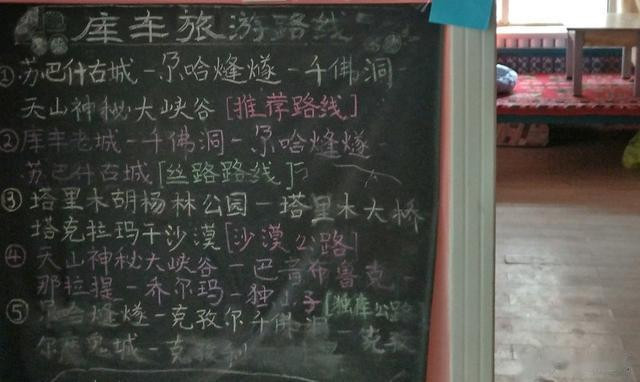 库车旅游路线
①苏巴什古城-尕哈烽燧-千佛洞-
天山神秘大峡谷[推荐路线]
②库车老城-千佛洞-尕哈烽燧-
苏巴什古城[丝路路线]
③塔里木胡杨林公园-塔里木大桥
塔克拉玛干沙漠[沙漠公路]
④天山神秘大峡谷-巴音布鲁克-
那拉提-乔尔玛-独山子[独库公路
⑤尕哈烽燧-克孜尔千佛洞-克孜
尔魔鬼城-克孜